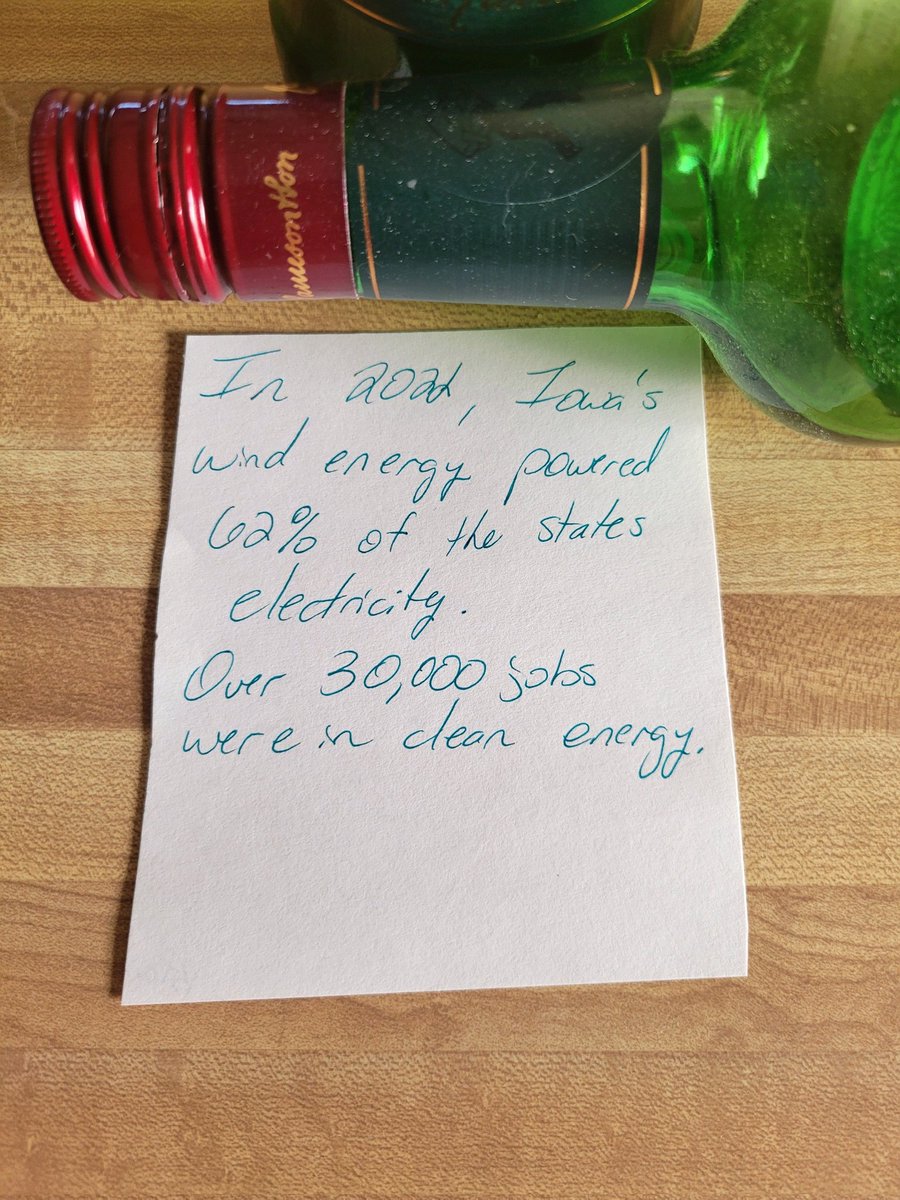 Jameson & Son
In 2022, Iowa's
wind energy powered
62% of the states
electricity.
Over 30,000 jobs
were in clean energy.